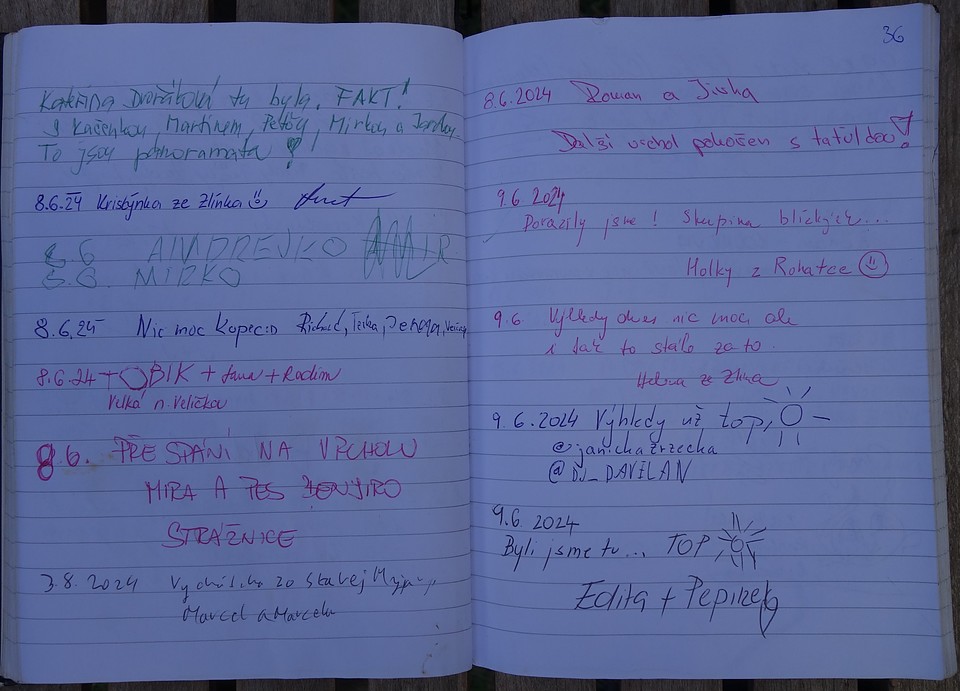 Kateřina Dvořáková tu byla. FAKT!
S Kačenkou, Martinem, Petrou, Mirkou a
To jsou panoramata!
8.6.24 Kristýnka ze Zlínka
8.6 ANDREJKO
8.6. MIRKO
8.6.24 Nic moc kopec:D Richard, Terka,
8.6.24 BIK + Jana + Radim
Velká n. Veličkou
8.6. PŘESPÁNÍ NA VRCHOLU
MIRA A PES
STRÁŽNICE
3.8.2024 zo starej
Marcel a Marcela
36
8.6.2024 Roman a Jirka
Další vrchol pokořen s taťuldou!
9.6 2024
Dorazily jsme! Skupina
Holky z Rohatce
9.6 Výhledy dnes nic moc, ale
i tak to stálo za to.
Helena ze Zlína
9.6.2024 Výhledy už top,
@janickazrzecka
@DJ_DAVILAN
9.6 2024
Byli jsme tu... TOP
Edita + Pepinek